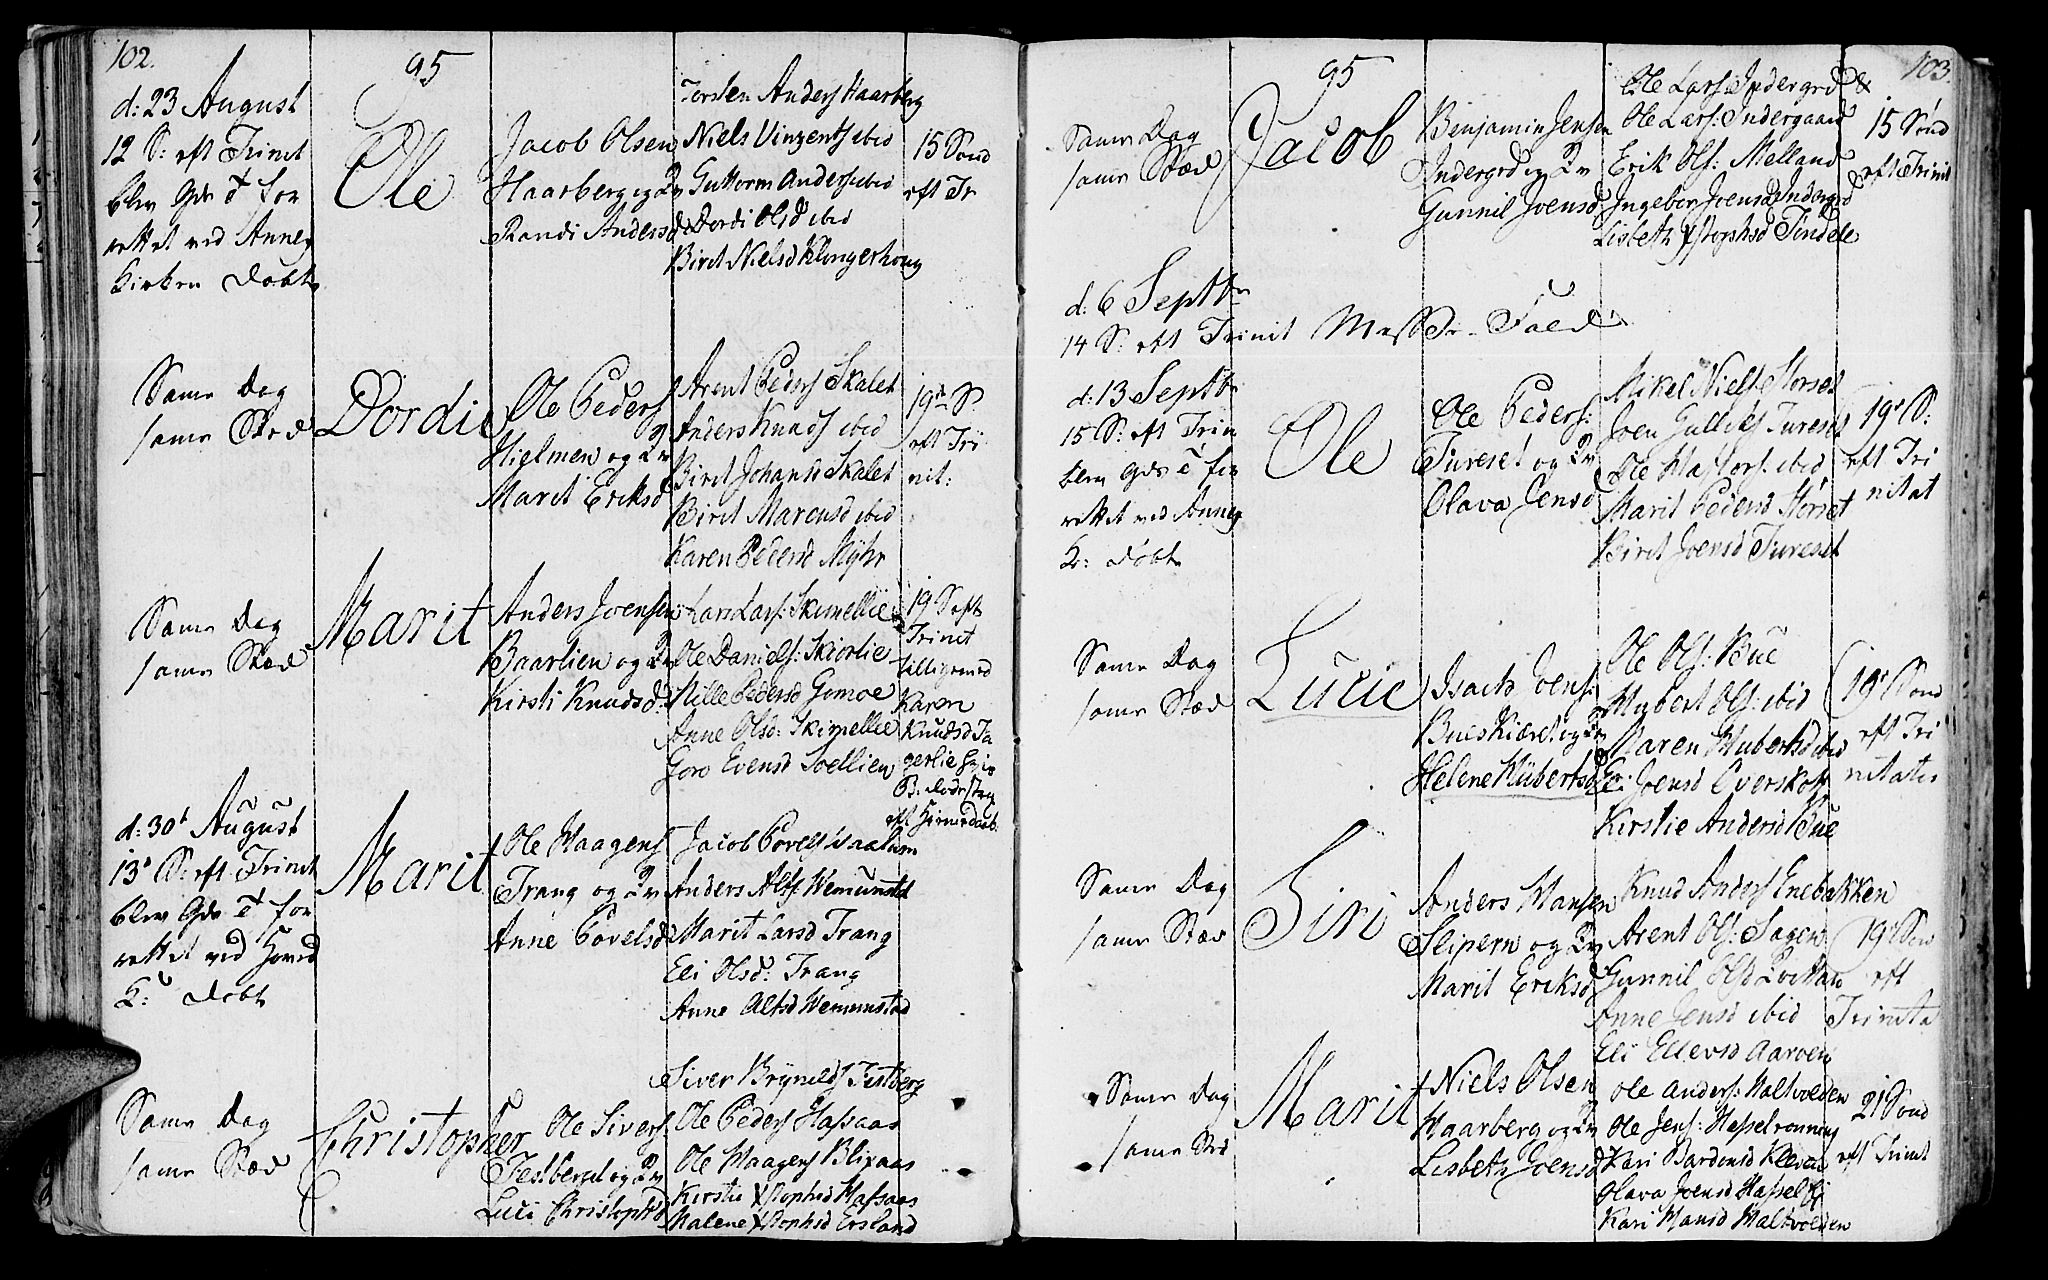 102.
95
d: 23 August
12 S: eft Trinit
blev Gds T for
rettet ved Annex
Kirken Døbt
Ole
Jacob Olsen
Haarberg og Qv
Randi Andersd
Torsten Anders Haarberg
Niels Vinzents ibid
Guttorm Anders ibid
Dordi Olsd ibid
Birit Nielsd Klingerhoug
15 Sönd
eft Tr
Same Dag
same Stæd
Dordi
Ole Peders
Hielmen og Qv
Marit Eriksd
Arent Peders Skalet
Anders Knuds ibid
Birit Johansd Skalet
Birit Marcusd ibid
Karen Pedersd Myhr
19de S.
eft Tri
nit:
Same Dag
same Stæd
Marit
Anders Joensen
Baarlien og Qv
Kirsti Knudsd:
Lars Lars: Skimellie
Ole Daniels: Skiørlie
Nille Pedersd Gomoe
Anne Olsd: Skimellie
Goro Evensd Soellien
19 S eft
Trinit
tilligemed
Karen
Knudsd
d: 30t August
13de S eft Trinit
blev Gds T for
rettet ved Hoved
K: Døbt
Marit
Ole Haagens
Trang og Qv
Anne Povelsd
Jacob Povels Vaalum
Anders Alfs Wemunstad
Marit Larsd Trang
Eli Olsd: Trang
Anne Alfsd Wemunstad
Same Dag
same Stæd
Christopher
Ole Sivers:
Festberget og Qv
Luci Christophsd
Siver Brynilds Festberg
Ole Peders Hafsaas
Ole Haagens Blixaas
Kirstie Xstophsd Hafsaas
Malene Xstophsd Ersland
103.
95
Same Dag
same Stæd
Jacob
Benjamin Jensen
Indergrd og Qv
Gunnil Joensd
Ole Lars Indergrd
Ole Lars: Indergaard
Erik Ols: Melland
Ingebor Joensd Indergrd
Lisbeth Xstophsd Tindele
15 Sönd
eft Trinit
d: 6 Septbr
14 S: eft Trinit Messe Fald
d: 13 Septbr
15 S: eft Trin
blev Gds T for
rettet ved Annex
K: Døbt
Ole
Ole Peders:
Tureset og Qv
Olava Jensd
Mikel Niels Storset
Joen Gulliks Tureset
Ole Hastors: ibid
Marit Pedersd Storset
Birit Joensd Tureset
19de S:
eft Tri
nitat
Same Dag
same Stæd
Lucie
Isach Joens:
Bueskiæret og Qv
Helene Hubertsd
Ole Ols: Bue
Hubert Ols: ibid
Maren Hubertsd ibid
Joensd Overskott
Kirstie Andersd Bue
19de Sönd
eft Tri
nitatis
Same Dag
same Stæd
Siri
Anders Hansen
Slipern og Qv
Marit Eriksd
Knud Anders Enebakken
Arent Ols: Sagen
Gunnil Olsd
Anne Jensd ibid
Eli Ellevsd Aaroen
19de Sön
eft
Trinita
Same Dag
same Sted
Marit
Niels Olsen
Haarberg og Qv
Lisbeth Joensd
Ole Anders: Haltvolden
Ole Jens: Hasselronning
Kari Bardensd Kleven
Olava Joensd
Kari Hansd Haltvolden
21 Sönd
eft Trinit